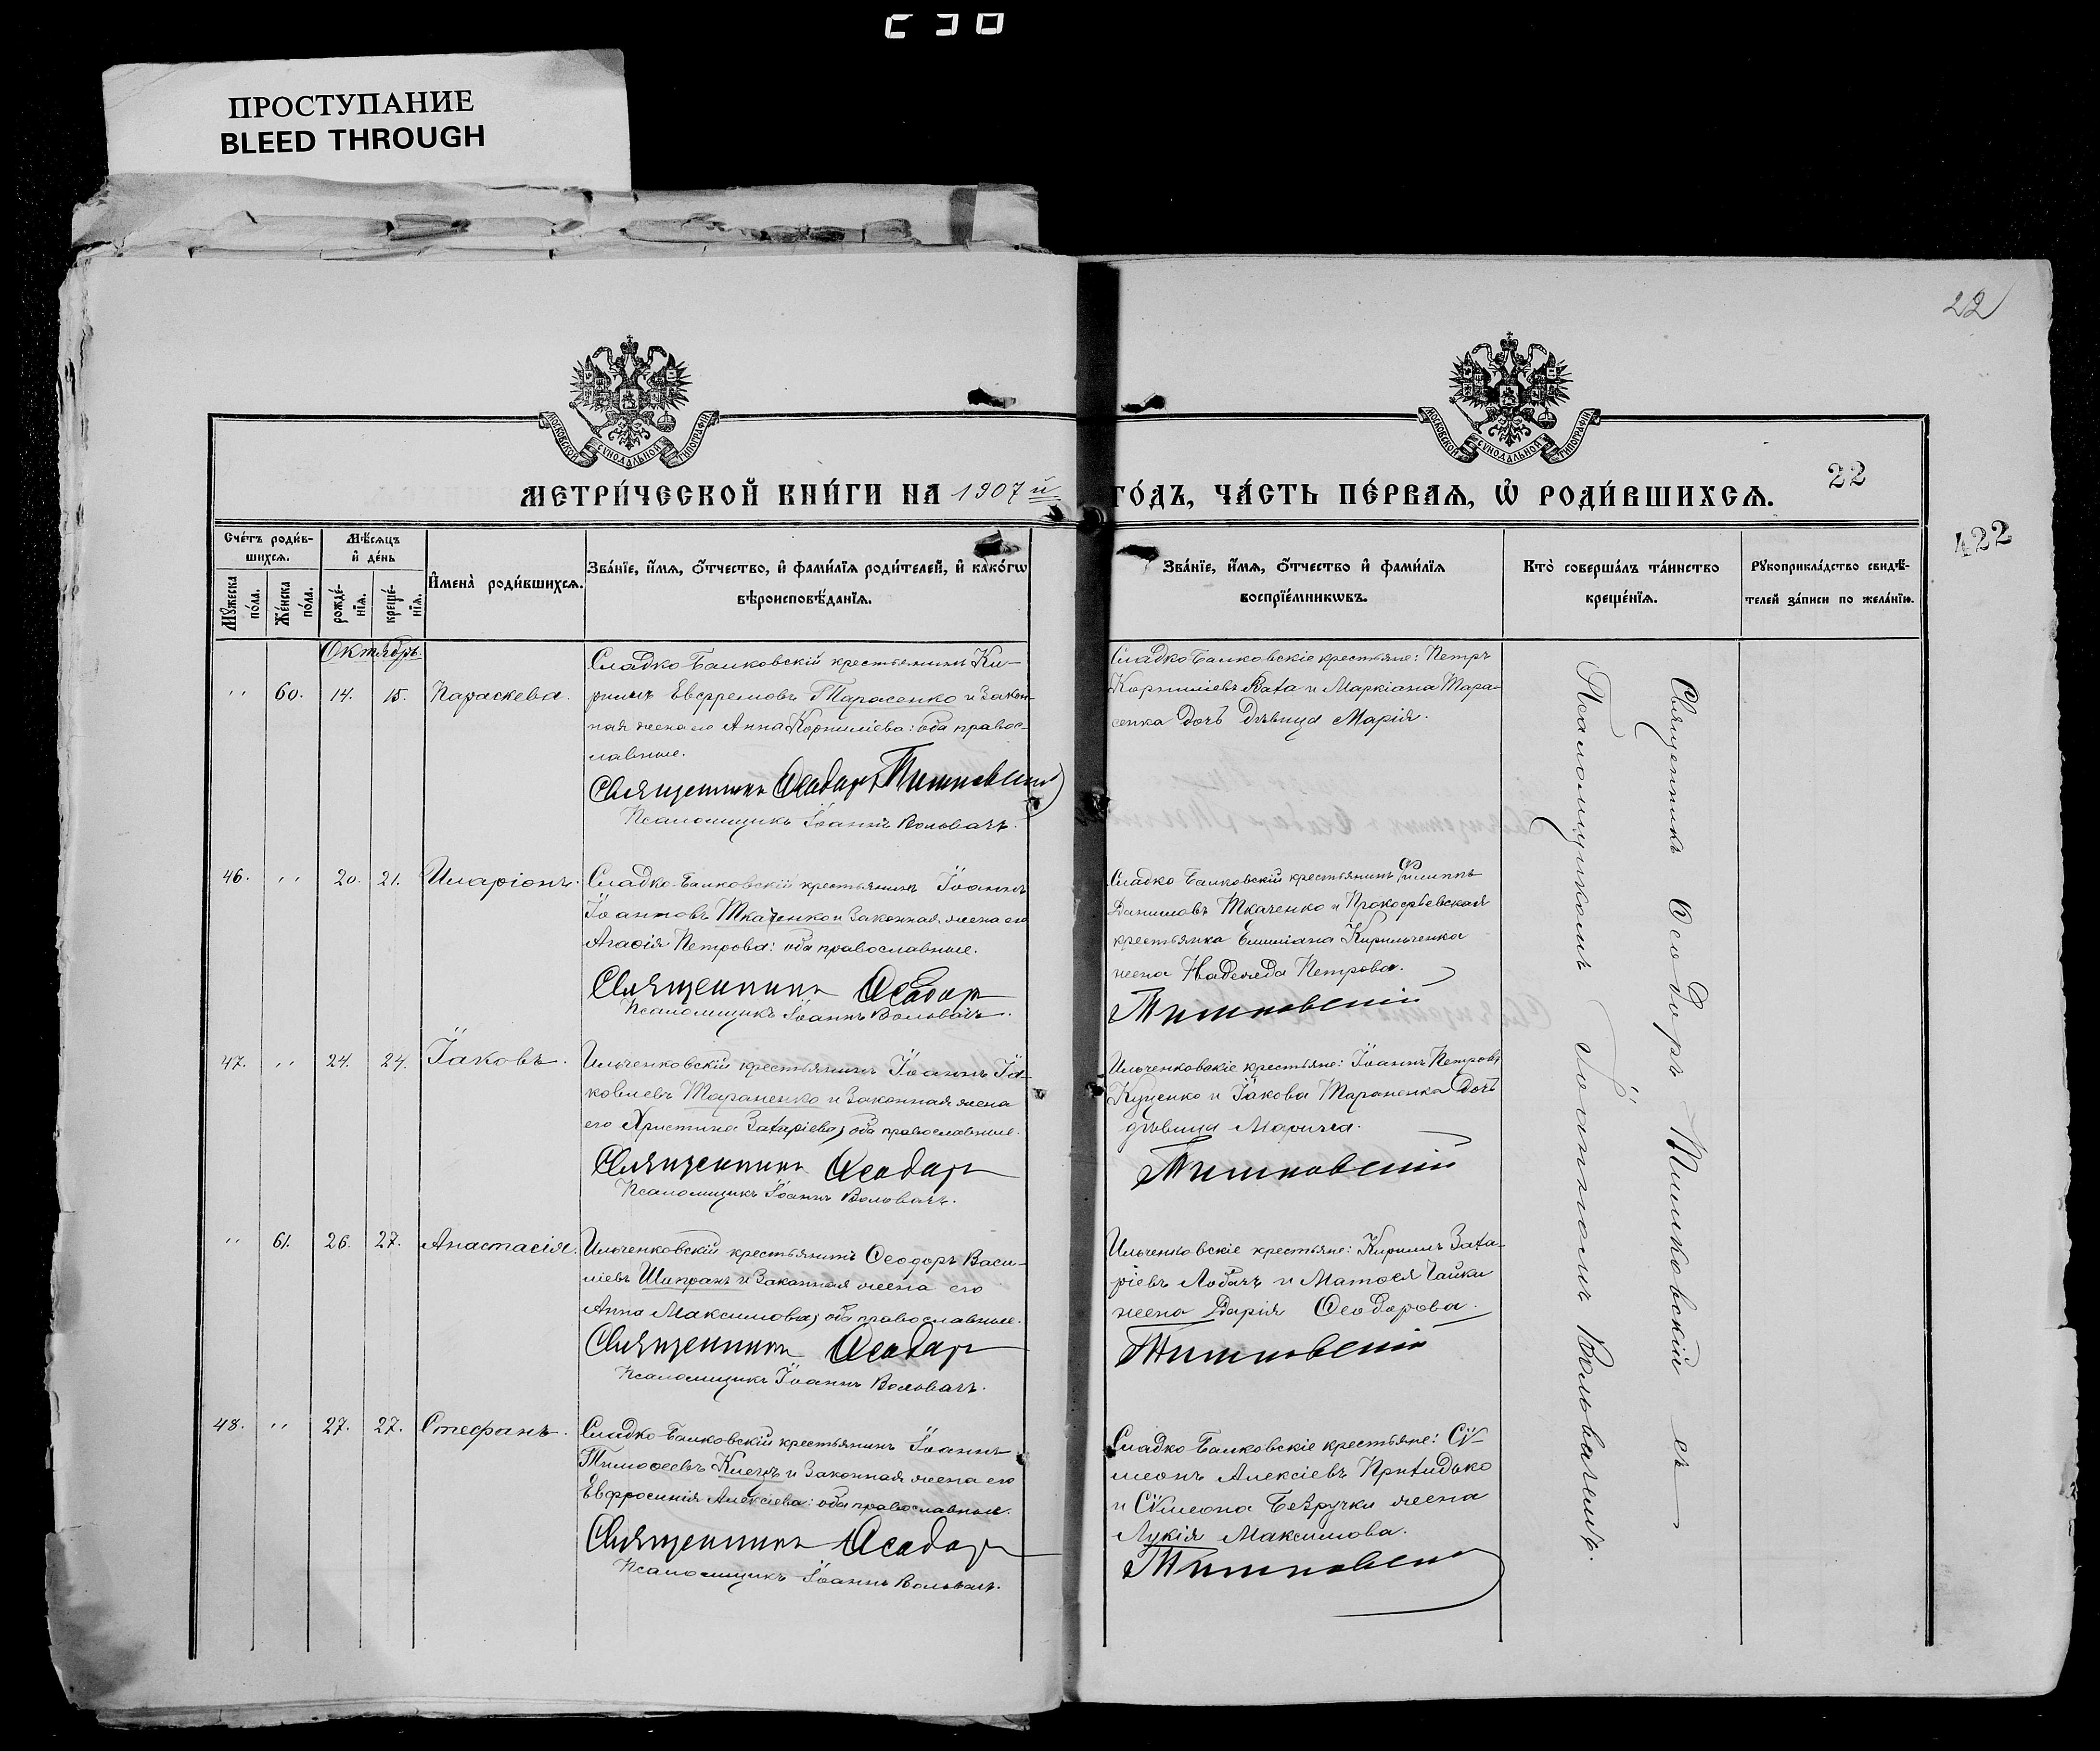 ПРОСТУПАНИЕ
BLEED THROUGH
22
МОСКОВСКОЙ СѴНОДАЛЬНОЙ ТИПОГРАФІИ
МОСКОВСКОЙ СѴНОДАЛЬНОЙ ТИПОГРАФІИ
МЕТРИ́ЧЕСКОЙ КНИ́ГИ НА 1907 й ГО́ДЪ, ЧА́СТЬ ПЕ́РВАѦ, Ѡ҆ РОДИ́ВШИХСѦ.
22
422
Сче́тъ роди́в-
шихсѧ.
Мꙋ́жеска по́ла.
Же́нска по́ла.
Мѣ́сѧцъ
и҆ де́нь
рожде́-
нїѧ.
креще́-
нїѧ.
И҆мена̀ роди́вшихсѧ.
Зва́нїе, и҆́мѧ, ѻ҆́тчество, и҆ фами́лїѧ роди́телей, и҆ како́гѡ
вѣроисповѣ́данїѧ.
Зва́нїе, и҆́мѧ, ѻ҆́тчество и҆ фами́лїѧ
воспрїе́мникѡвъ.
Кто̀ соверша́лъ та́инство
креще́нїѧ.
Рꙋкоприкла́дство свидѣ́-
телей за́писи по жела́нїю.
Октябрь.
" 60. 14. 15. Параскева.
Сладко-Балковскій крестьянинъ Ки-
риллъ Евфремовъ Тарасенко и закон-
ная жена его Анна Корнилїева: оба правос-
лавные.
Священникъ Ѳеодоръ Тишковскій
Псаломщикъ Іоаннъ Вольвачъ.
Сладко Балковскіе крестьяне: Петръ
Корнилїевъ и Маркіана Тара-
сенка дочь дѣвица Марія.
46. " 20. 21. Иларіонъ.
Сладко-Балковскій крестьянинъ Іоаннъ
Іоанновъ Ткаченко и законная жена его
Агаѳія Петрова: оба православные.
Священникъ Ѳеодоръ
Псаломщикъ Іоаннъ Вольвачъ.
Сладко Балковскій крестьянинъ Филиппъ
Даниловъ Ткаченко и Прокофьевская
крестьянка Емиліана Кирильченка
жена Надежда Петрова.
Тишковскій
47. " 24. 24. Іаковъ.
Ильченковскій крестьянинъ Іоаннъ Іа-
ковлевъ Тараненко и законная жена
его Христина Захаріева; оба православные.
Священникъ Ѳеодоръ
Псаломщикъ Іоаннъ Вольвачъ.
Ильченковскіе крестьяне: Іоаннъ Петровъ
Куценко и Іакова Тараненка дочь
дѣвица
Тишковскій
" 61. 26. 27. Анастасія.
Ильченковскій крестьянинъ Ѳеодоръ Васи-
ліевъ и законная жена его
Анна Максимова; оба православные.
Священникъ Ѳеодоръ
Псаломщикъ Іоаннъ Вольвачъ.
Ильченковскіе крестьяне: Кириллъ Заха-
ріевъ Лобачъ и Матѳея Чайки
жена Дарія Ѳеодорова.
Тишковскій
48. " 27. 27. Стефанъ.
Сладко-Балковскій крестьянинъ Іоаннъ
Тимоѳеевъ и законная жена его
Евфросинія Алексіева: оба православные.
Священникъ Ѳеодоръ
Псаломщикъ Іоаннъ Вольвачъ.
Сладко-Балковскіе крестьяне: Сѵ-
меонъ Алексіевъ Прихидько
и Сѵмеона жена
Лукія Максимова.
Тишковскій
Священникъ Ѳеодоръ Тишковскій съ
Псаломщикомъ Іоанномъ Вольвачемъ.